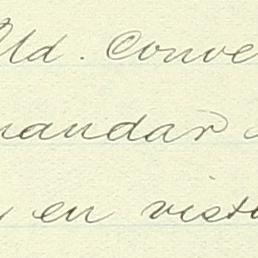 Ud. conve
mandar
en vist